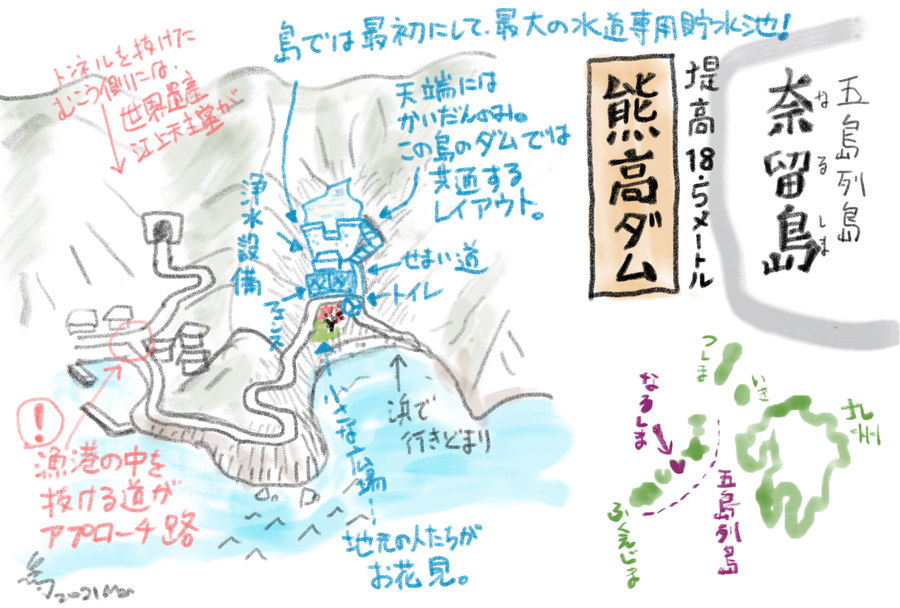 島では最初にして、最大の水道専用貯水池!
トンネルを抜けた
むこう側には、
世界遺産
江上天主堂が
天端には
かいだんのみ。
この島のダムでは
共通する
レイアウト。
浄水設備
せまい道
トイレ
フェンス
小さな広場
地元の人たちが
お花見。
浜で
行きどまり
!
漁港の中を
抜ける道が
アプローチ路
熊高ダム
堤高18.5メートル
五島列島
奈留島
なるしま
つしま
いき
九州
なるしま
五島列島
ふくえじま
2021 Mar